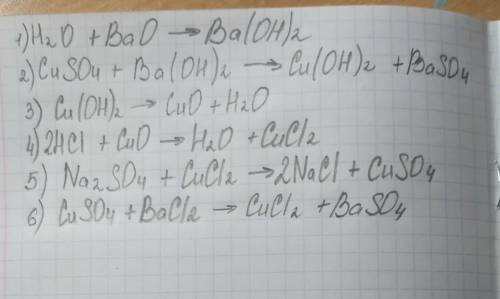 1) H2O + BaO → Ba(OH)2
2) CuSO4 + Ba(OH)2 → Cu(OH)2 + BaSO4
3) Cu(OH)2 → CuO + H2O
4) 2HCl + CuO → H2O + CuCl2
5) Na2SO4 + CuCl2 → 2NaCl + CuSO4
6) CuSO4 + BaCl2 → CuCl2 + BaSO4